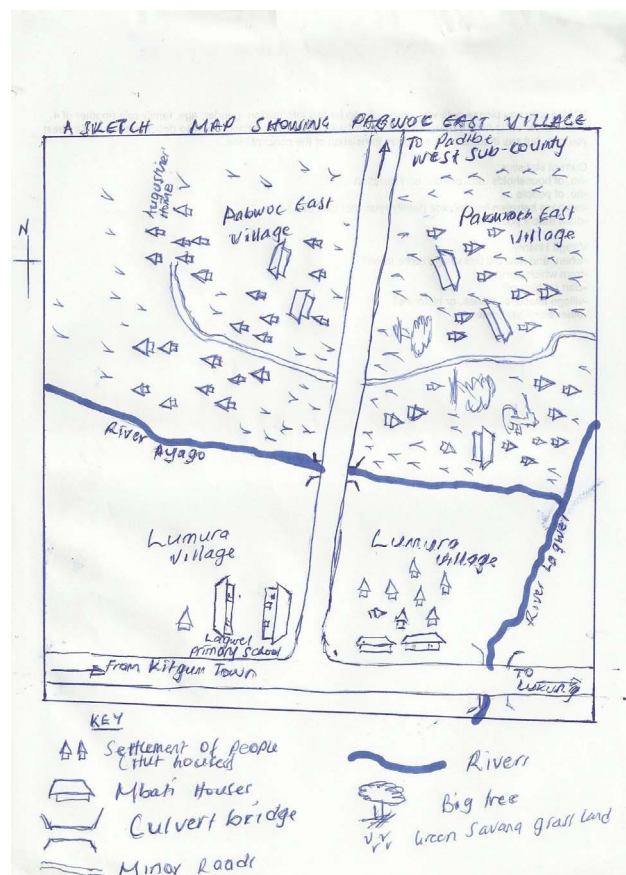 A SKETCH MAP SHOWING PABWOC EAST VILLAGE
TO Padibe
West Sub-county
Augustines
Home
Pabwoc East
Village
Pabwoch East
Village
N
River
Ayago
Lumura
Village
Lumura
Village
River Lagwel
Lagwel
Primary School
From Kitgum Town
TO
KEY
Settlement of People
(Hut houses)
Mbati Houses
Culvert bridge
Minor Roads
Rivers
Big tree
Green Savana grass land